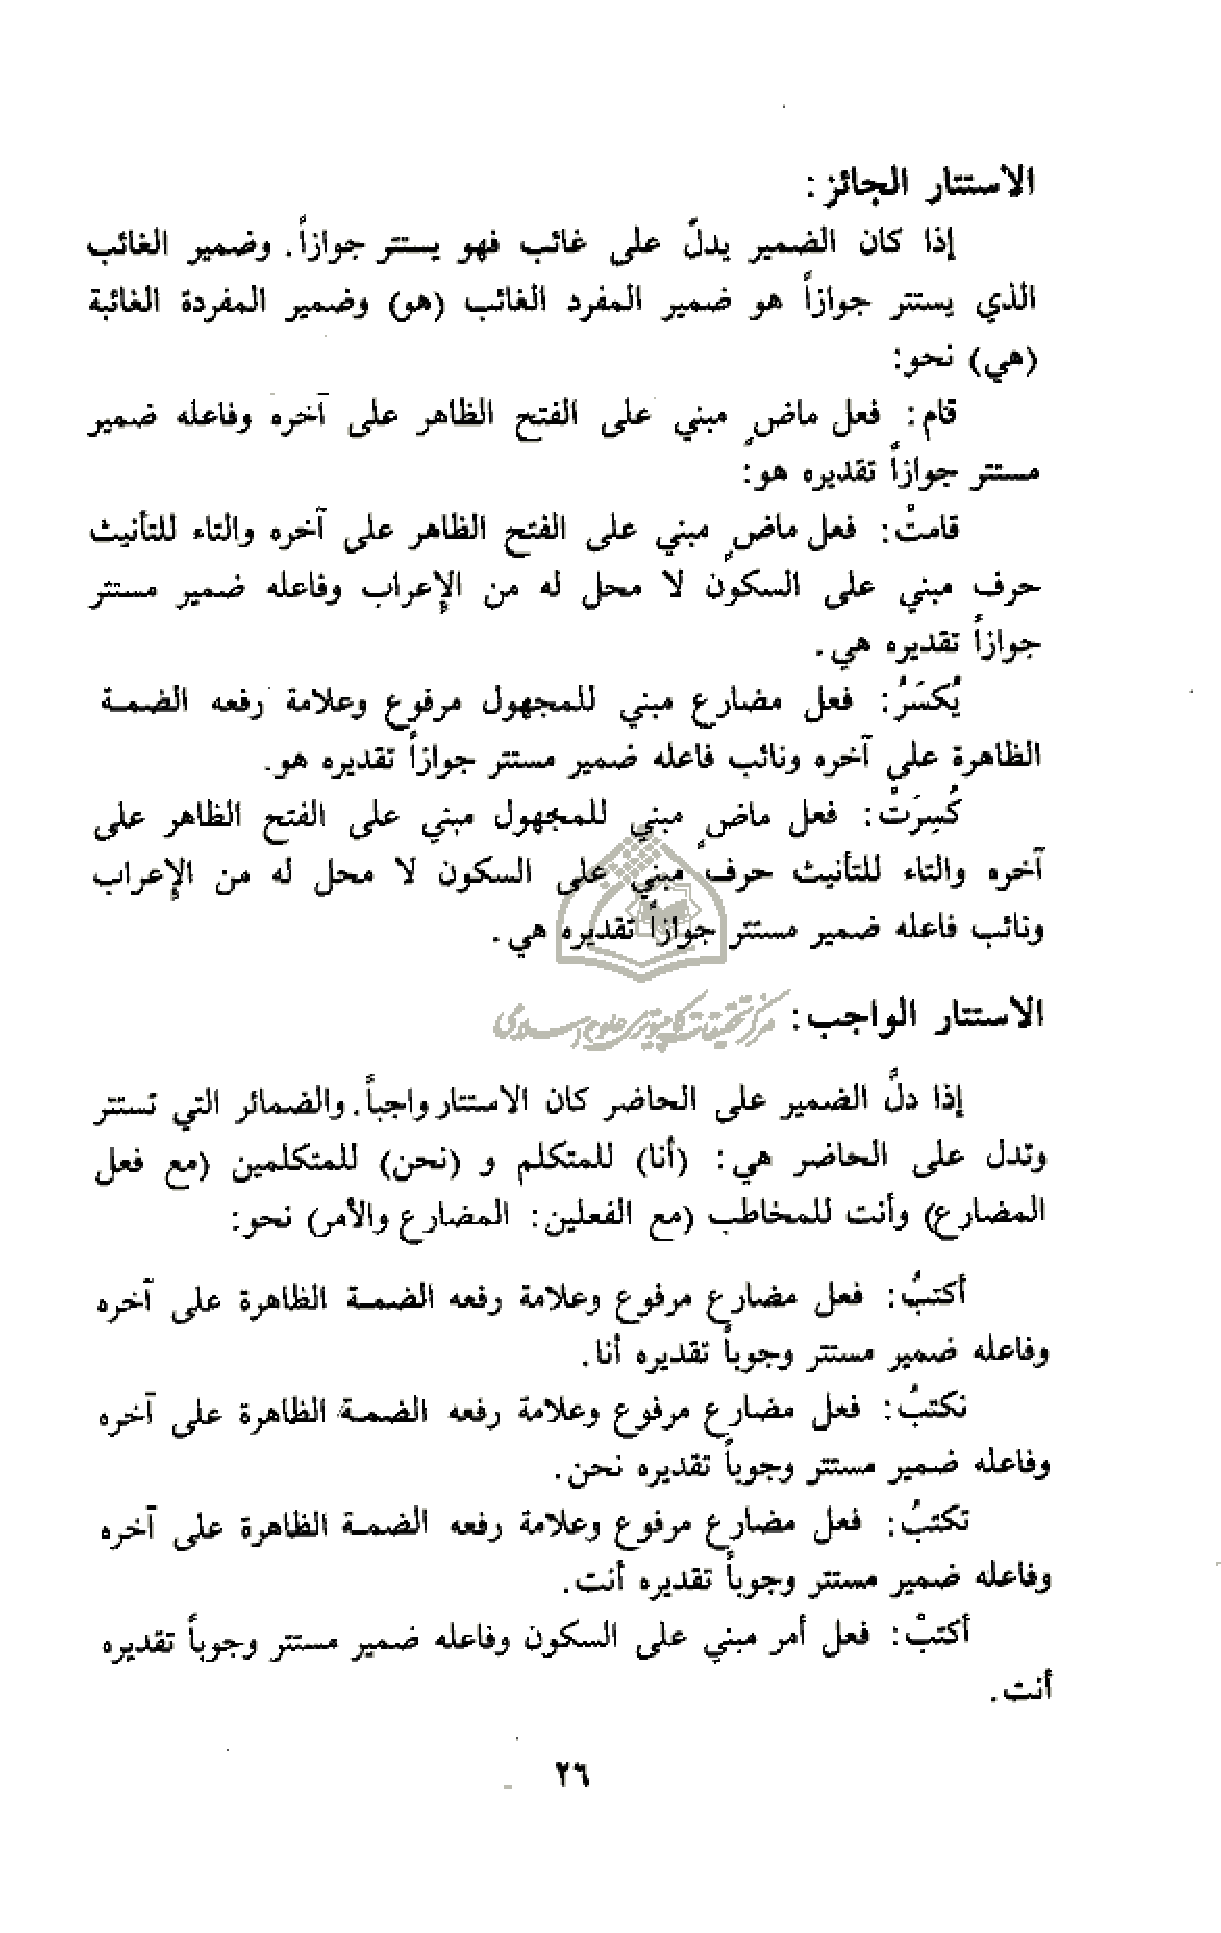 الاستتار الجائز:
إذا كان الضمير يدلّ على غائب فهو يستتر جوازاً. وضمير الغائب
الذي يستتر جوازاً هو ضمير المفرد الغائب (هو) وضمير المفردة الغائبة
(هي) نحو:
قام: فعل ماضٍ مبني على الفتح الظاهر على آخره وفاعله ضمير
مستتر جوازاً تقديره هو:
قامتْ: فعل ماضٍ مبني على الفتح الظاهر على آخره والتاء للتأنيث
حرف مبني على السكون لا محل له من الإعراب وفاعله ضمير مستتر
جوازاً تقديره هي.
يُكسَرُ: فعل مضارع مبني للمجهول مرفوع وعلامة رفعه الضمة
الظاهرة على آخره ونائب فاعله ضمير مستتر جوازاً تقديره هو.
كُسِرَتْ: فعل ماضٍ مبني للمجهول مبني على الفتح الظاهر على
آخره والتاء للتأنيث حرف مبني على السكون لا محل له من الإعراب
ونائب فاعله ضمير مستتر جوازاً تقديره هي.
الاستتار الواجب:
مركز تحقیقات کامپیوتری علوم اسلامی
إذا دلَّ الضمير على الحاضر كان الاستتار واجباً. والضمائر التي تستتر
وتدل على الحاضر هي: (أنا) للمتكلم و (نحن) للمتكلمين (مع فعل
المضارع) وأنت للمخاطب (مع الفعلين: المضارع والأمر) نحو:
أكتبُ: فعل مضارع مرفوع وعلامة رفعه الضمة الظاهرة على آخره
وفاعله ضمير مستتر وجوباً تقديره أنا.
نكتبُ: فعل مضارع مرفوع وعلامة رفعه الضمة الظاهرة على آخره
وفاعله ضمير مستتر وجوباً تقديره نحن.
تكتبُ: فعل مضارع مرفوع وعلامة رفعه الضمة الظاهرة على آخره
وفاعله ضمير مستتر وجوباً تقديره أنت.
أكتبْ: فعل أمر مبني على السكون وفاعله ضمير مستتر وجوباً تقديره
أنت.
٢٦